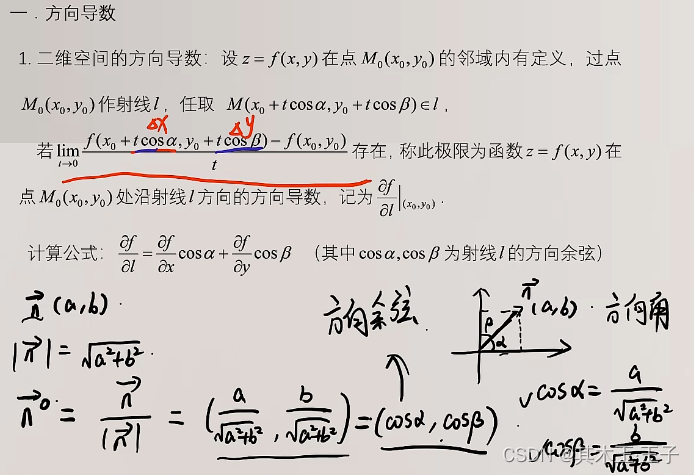 一．方向导数
1. 二维空间的方向导数：设 z = f(x,y) 在点 M₀(x₀,y₀) 的邻域内有定义，过点
M₀(x₀,y₀) 作射线 l，任取 M(x₀+tcosα, y₀+tcosβ)∈l，
Δx Δy
若 lim_{t→0} \frac{f(x₀+tcosα, y₀+tcosβ)−f(x₀,y₀)}{t} 存在, 称此极限为函数 z = f(x,y) 在
点 M₀(x₀,y₀) 处沿射线 l 方向的方向导数，记为 \frac{∂f}{∂l}|_{(x₀,y₀)}．
计算公式：\frac{∂f}{∂l} = \frac{∂f}{∂x}cosα + \frac{∂f}{∂y}cosβ （其中 cosα,cosβ 为射线 l 的方向余弦）
\vec{n} (a,b).
|\vec{n}| = \sqrt{a²+b²}.
\vec{n}° = \frac{\vec{n}}{|\vec{n}|} = (\frac{a}{\sqrt{a²+b²}}, \frac{b}{\sqrt{a²+b²}}) = (cosα, cosβ)
方向余弦.
\vec{n} (a,b). 方向角
β α
√cosα = \frac{a}{\sqrt{a²+b²}}
√cosβ = \frac{b}{\sqrt{a²+b²}}